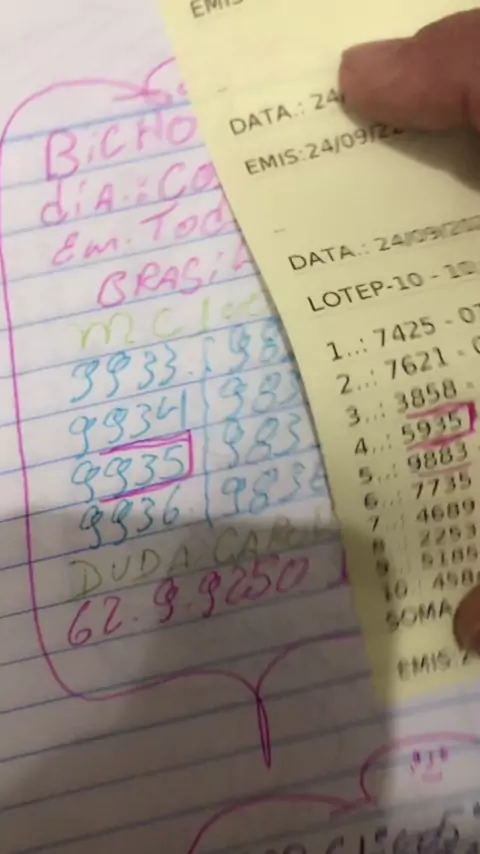 BiCHO
diA.: CO
Em. Tod
BRASIL
9933. 983
9934 983
9935 983
9936. 9836
DUDA CAROL
62.9.9250
EMIS
DATA.: 24/
EMIS:24/09/22
DATA.: 24/09/202
LOTEP-10 - 10
1..: 7425 - 07
2..: 7621 -
3..: 3858 -
4..: 5935
5..: 9883
6..: 7735
7..: 4689
8..: 2253
9..: 5185
10..: 458
SOMA
EMIS:2